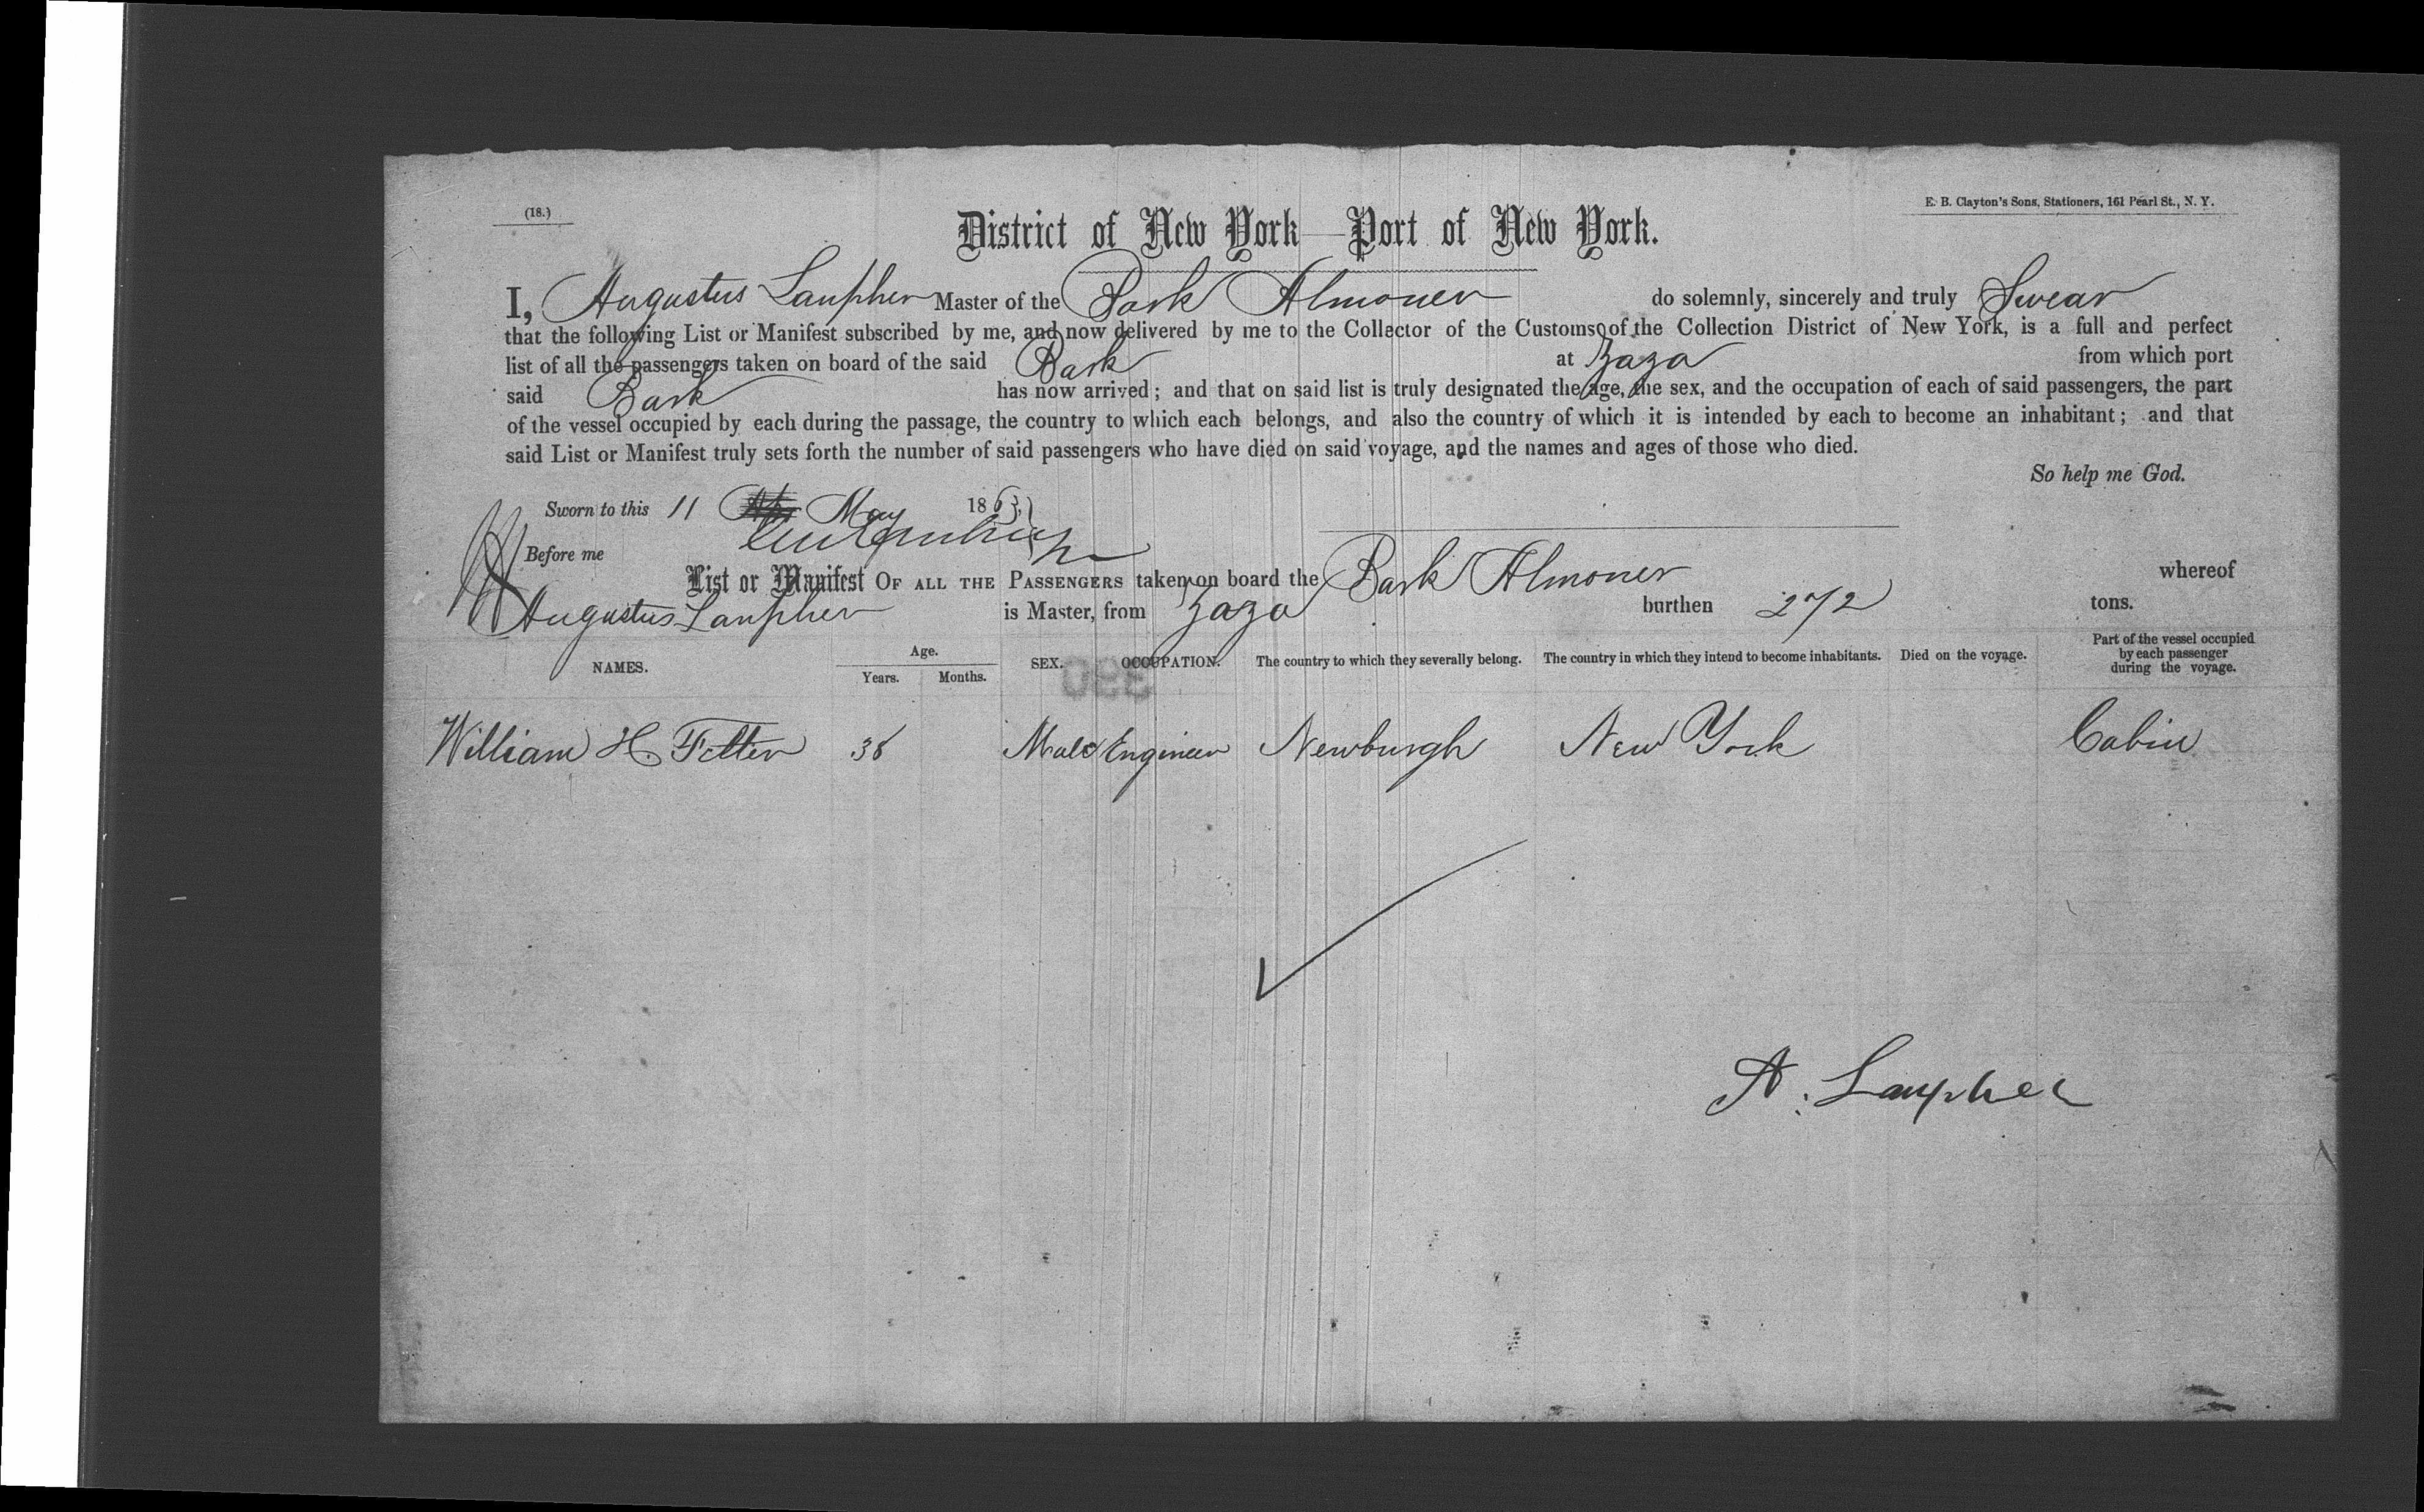 (18.)
E. B. Clayton's Sons, Stationers, 161 Pearl St., N. Y.
District of New York—Port of New York.
I, Augustus Lanpher Master of the Bark Almoner do solemnly, sincerely and truly Swear
that the following List or Manifest subscribed by me, and now delivered by me to the Collector of the Customs of the Collection District of New York, is a full and perfect
list of all the passengers taken on board of the said Bark at Zaza from which port
said Bark has now arrived; and that on said list is truly designated the age, the sex, and the occupation of each of said passengers, the part
of the vessel occupied by each during the passage, the country to which each belongs, and also the country of which it is intended by each to become an inhabitant; and that
said List or Manifest truly sets forth the number of said passengers who have died on said voyage, and the names and ages of those who died.
So help me God.
Sworn to this 11 May 1863
Before me
List or Manifest OF ALL THE PASSENGERS taken on board the Bark Almoner whereof
Augustus Lanpher is Master, from Zaza burthen 272 tons.
NAMES. Age. Years. Months. SEX. OCCUPATION. The country to which they severally belong. The country in which they intend to become inhabitants. Died on the voyage. Part of the vessel occupied by each passenger during the voyage.
390
William H. Fetter 38 Male Engineer Newburgh New York Cabin
A. Lanpher